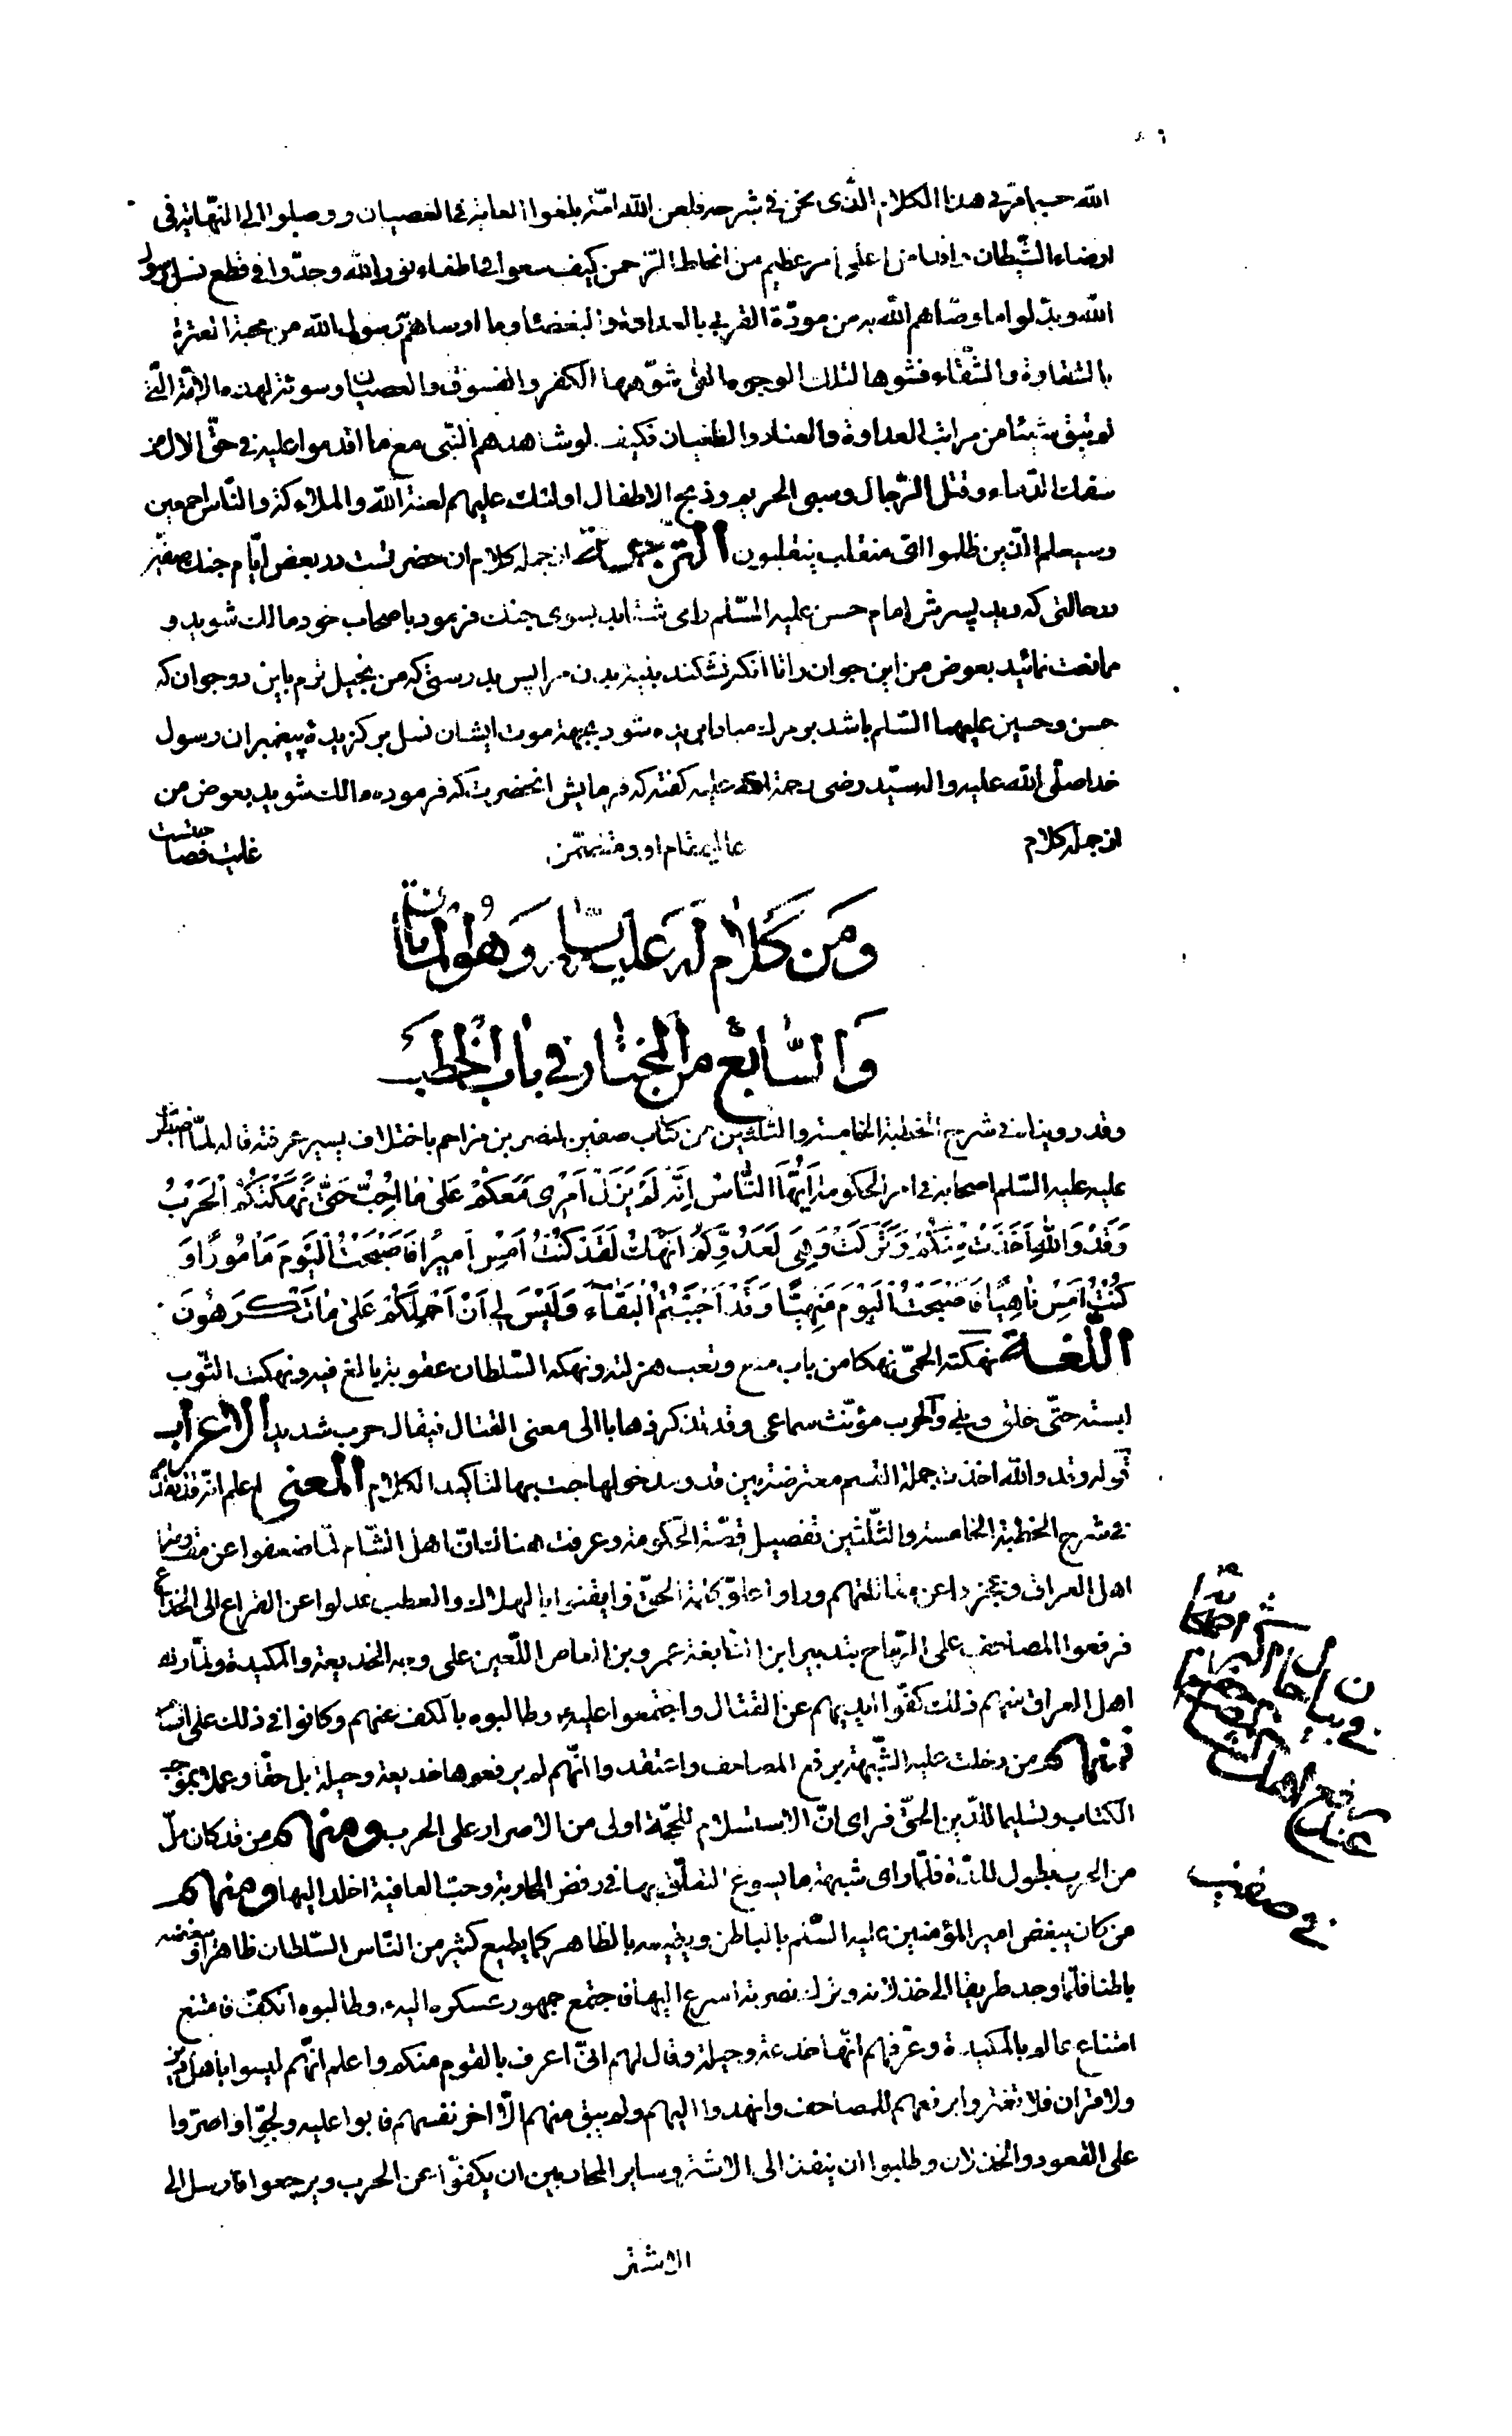 الله حسبما مرّ في هذا الكلام الذى نحن في شرحه فلعن الله امّة بلغوا الغاية في العصيان ووصلوا الى النّهاية في
ارضاء الشّيطان و اقدموا على أمر عظيم من اسخاط الرّحمن كيف سعوا في اطفاء نور الله وجدّوا في قطع نسل رسول
الله وبدّلوا ما وصّاهم الله به من مودّة القربى بالعداوة والبغضاء وما اوصاهم رسول الله من محبّة العترة
بالشقاوة والشّقاء فشوها لتلك الوجوه التى شوّهها الكفر والفسوق والعصيان وسوئة لهذه الامّة الّتى
لم تبق شيئا من مراتب العداوة والعناد والطغيان فكيف لو شاهدهم النّبى مع ما اقدموا عليه في حقّ الال من
سفك الدّماء وقتل الرّجال وسبى الحريم وذبح الاطفال اولئك عليهم لعنة الله والملائكة والنّاس اجمعين
وسيعلم الّذين ظلموا اىّ منقلب ينقلبون الترجمة از جمله كلام ان حضرتست در بعض ايّام جنك صفّين
در حالتى كه ديد پسرش امام حسن عليه السّلم را مى شتابد بسوى جنك فرمود باصحاب خود مالك شويد و
ممانعت نمائيد بعوض من اين جوان را تا آنكه نشكند مرا پس بدرستى كه من بخيل ترم باين دو جوان كه
حسن وحسين عليهما السّلم باشد بر مرك مبادا بريده شود بجهة موت ايشان نسل بركزيدۀ پيغمبران رسول
خدا صلّى الله عليه واله سيّد رضى رحمة الله عليه كفته كه فرمايش انحضرت كه فرموده مالك شويد بعوض من
از جمله كلام عاليمقام او ومتضمّن غايت فصاحتست
ومن كلام له عليه السّلام وهو المأتان
والسّابع من المختار في باب الخطب
وقد رويناه في شرح الخطبة الخامسة والثلثين من كتاب صفين لنصر بن مزاحم باختلاف يسير عرفته قاله لمّا اضطرب
عليه عليه السّلم اصحابه في امر الحكومة أَيُّهَا النَّاسُ إِنَّهُ لَمْ يَزَلْ أَمْرِى مَعَكُمْ عَلَى مَا أُحِبُّ حَتَّى نَهَكَتْكُمُ الْحَرْبُ
وَقَدْ وَاللهِ أَخَذَتْ مِنْكُمْ وَتَرَكَتْ وَهِىَ لِعَدُوِّكُمْ أَنْهَكُ لَقَدْ كُنْتُ أَمْسِ أَمِيرًا فَأَصْبَحْتُ الْيَوْمَ مَأْمُورًا وَ
كُنْتُ أَمْسِ نَاهِيًا فَأَصْبَحْتُ الْيَوْمَ مَنْهِيًّا وَقَدْ أَحْبَبْتُمُ الْبَقَاءَ وَلَيْسَ لِى أَنْ أَحْمِلَكُمْ عَلَى مَا تَكْرَهُونَ
اللّغة نهكته الحمّى نهكا من باب منع وتعب هزلته ونهكه السّلطان عقوبة بالغ فيه ونهكت الثّوب
لبسته حتّى خلق وبلى والحرب مؤنّث سماعى وقد تذكر ذهابا الى معنى القتال فيقال حرب شديد الاعراب
قوله وقد والله اخذت جملة القسم معترضة بين قد ومدخولها جىء بها لتاكيد الكلام المعنى اعلم انّه قد تقدّم
في شرح الخطبة الخامسة والثلثين تفصيل قصّة الحكومة وعرفت هنالك انّ اهل الشّام لمّا ضعفوا عن مقاومة
اهل العراق وعجزوا عن مقاتلتهم وراوا علوّ كلمة الحقّ وايقنوا بالهلاك والعطب عدلوا عن القراع الى الخداع
فرفعوا المصاحف على الرّماح بتدبير ابن النّابغة عمرو بن العاص اللّعين على وجه الخديعة والمكيدة ولمّا راى
اهل العراق منهم ذلك كفّوا ايديهم عن القتال واجتمعوا عليه وطالبوه بالكفّ عنهم وكانوا في ذلك على اقسام
فمنهم من دخلت عليه الشّبهة برفع المصاحف واعتقدوا انّهم لم يرفعوها خديعة وحيلة بل حقّا وعملا بموجب
الكتاب وتسليما للدّين الحقّ فراى انّ الاستسلام للحجّة اولى من الاصرار على الحرب ومنهم من قد كان ملّ
من الحرب بطول المدّة فلمّا راى شبهة ما يسوغ التعلّق بها في رفض المحاربة وحبّ العافية اخلد اليها ومنهم
من كان يبغض امير المؤمنين عليه السّلم بالباطن ويطيعه بالظاهر كما يطيع كثير من النّاس السّلطان ظاهرا ويبغضه
باطنا فلمّا وجد طريقا الى خذلانه وترك نصرته اسرع اليها فاجتمع جمهور عسكره اليه وطالبوه الكفّ فامتنع
امتناع عالم بالمكيدة وعرّفهم انّها خدعة وحيلة وقال لهم انّى اعرف بالقوم منكم واعلم انّهم ليسوا باهل دين
ولا قران فلا تغترّوا برفعهم المصاحف وانهدوا اليهم ولم يبق منهم الّا اخر نفسهم فابوا عليه ولجّوا واصرّوا
على القعود والخذلان وطلبوا ان ينفذ الى الاشتر وساير المحاربين ان يكفّوا عن الحرب ويرجعوا فارسل الى
الاشتر
في صفين